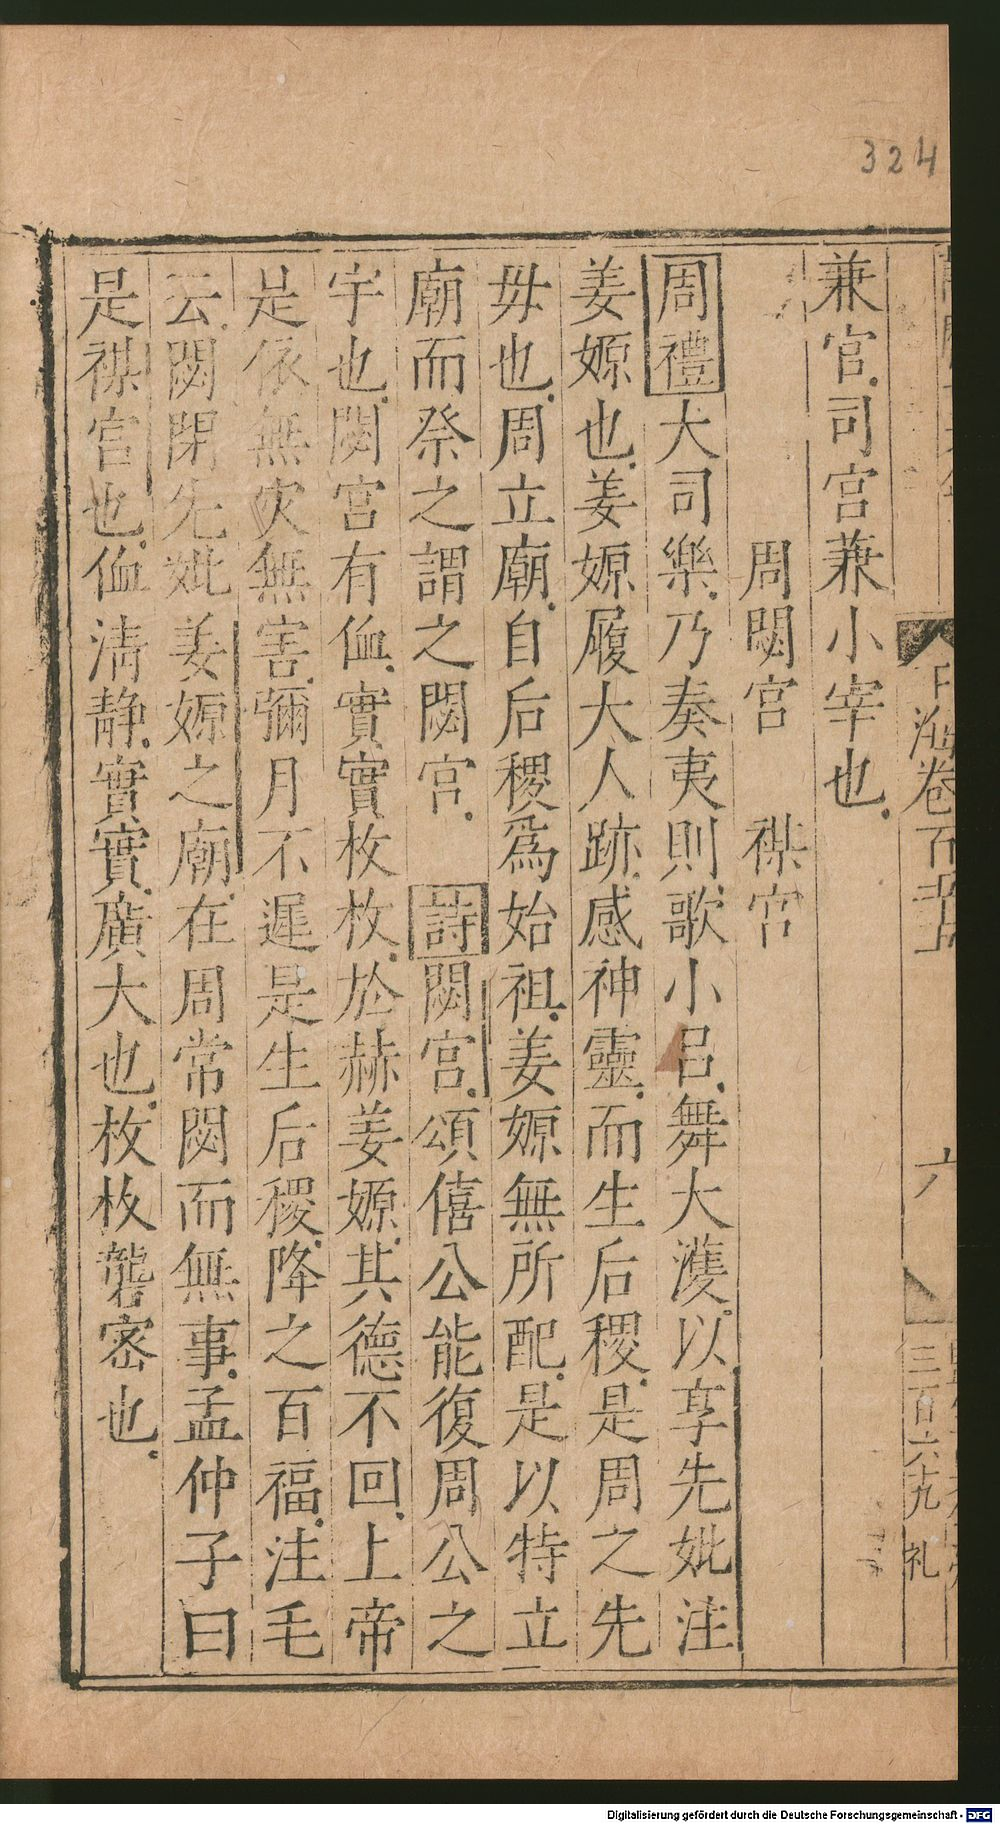 324
兼官司宮兼小宰也
周閟宮　禖宮
周禮大司樂乃奏夷則歌小呂舞大濩以享先妣注
姜嫄也姜嫄履大人跡感神靈而生后稷是周之先
毋也周立廟自后稷爲始祖姜嫄無所配是以特立
廟而祭之謂之閟宮　詩閟宮頌僖公能復周公之
宇也閟宮有侐實實枚枚於赫姜嫄其德不回上帝
是依無灾無害彌月不遲是生后稷降之百福注毛
云閟閉先妣姜嫄之廟在周常閟而無事孟仲子曰
是禖宮也侐清静實實廣大也枚枚礱密也
卷百
六
三百六十九
礼
Digitalisierung gefördert durch die Deutsche Forschungsgemeinschaft - DFG